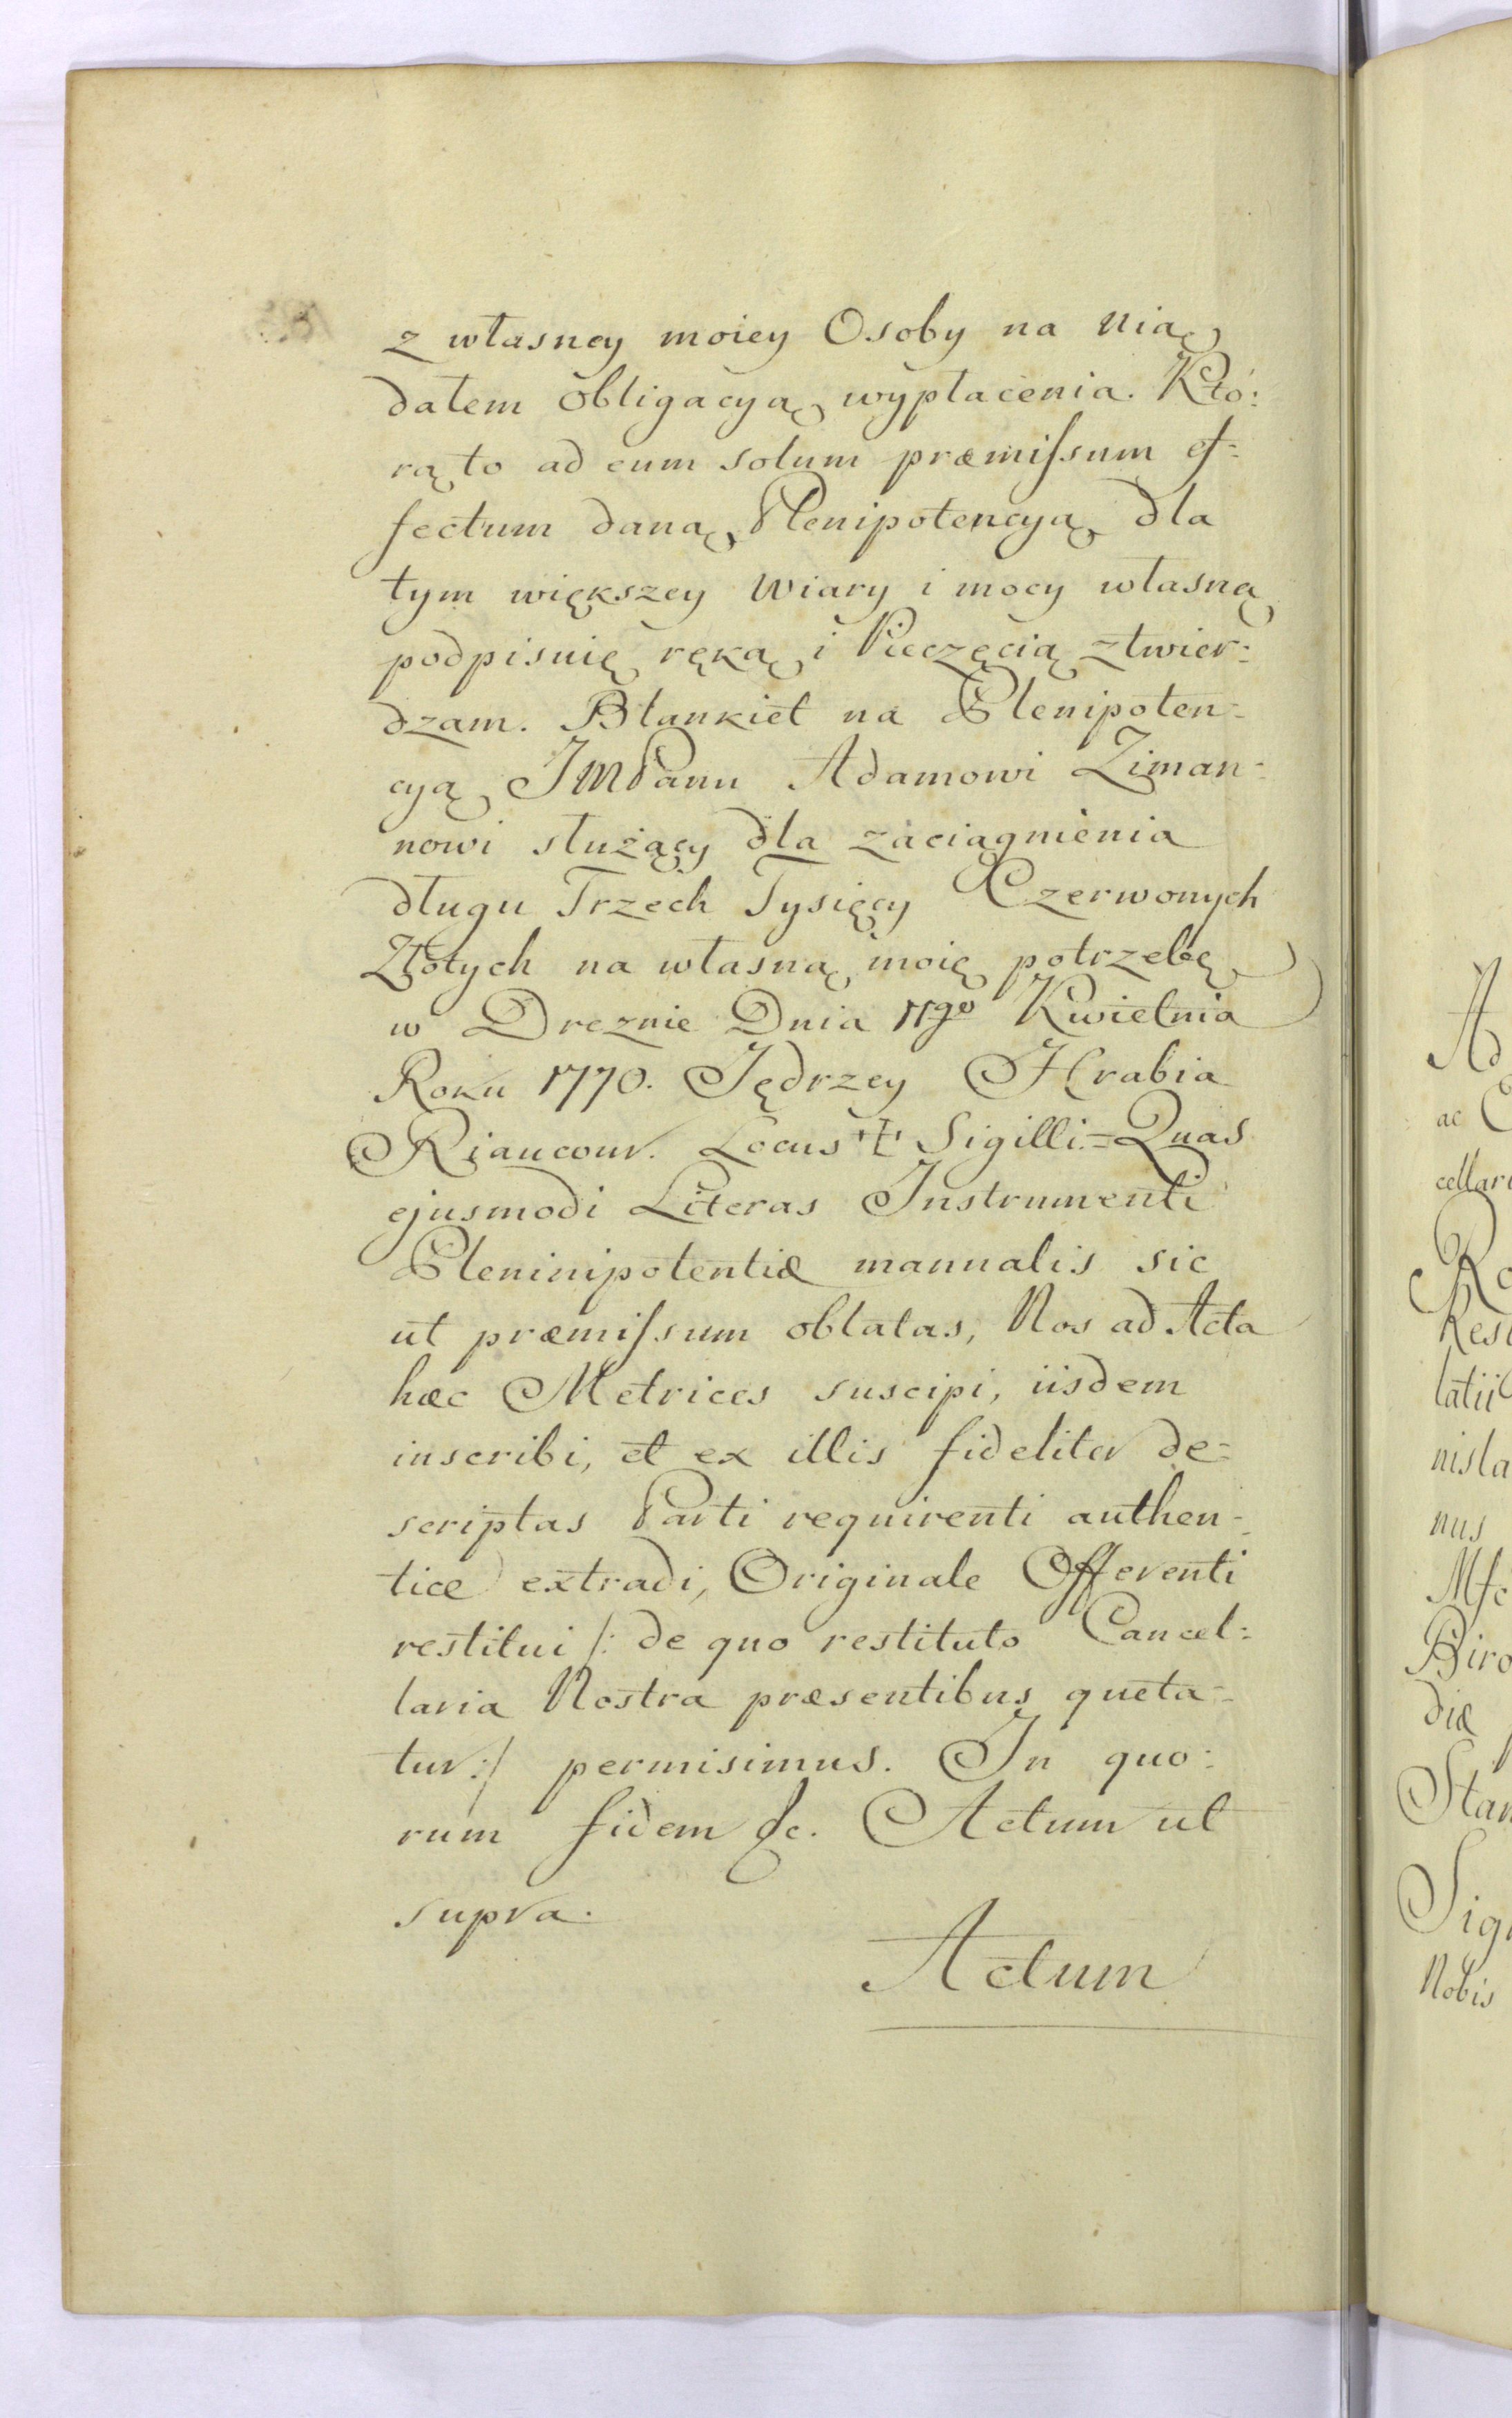 z własney moiey Osoby na nią
dałem obligacyą wypłacenia. Któ:
rą to ad eum solum præmissum ef=
fectum daną Plenipotencyą dla
tym większey wiary i mocy własną
podpisuię ręką i Pieczęcią ztwier=
dzam. Blankiet na Plenipoten=
cyą JMPanu Adamowi Ziman=
nowi służący dla zaciągnienia
długu Trzech Tysięcy Czerwonych
Złotych na własną moię potrzebę
w Dreznie Dnia 11go Kwietnia
Roku 1770. Jędrzey Hrabia
Riaucour. Locus ✝ Sigilli.=Quas
ejusmodi Literas Instrumenti
Pleninipotentiæ manualis sic
ut præmissum oblatas, Nos ad Acta
hæc Metrices suscipi, iisdem
inscribi, et ex illis fideliter de=
scriptas Parti requirenti authen=
tice extradi, Originale Offerenti
restitui /: de quo restituto Cancel:
laria Nostra præsentibus quieta=
tur :/ permisimus. In quo:
rum fidem &c. Actum ut
supra.
Actum
A
ac
cellari
R
Resi
latii
nisla
nus
Biro
diæ
Stan
Sig
Nobis